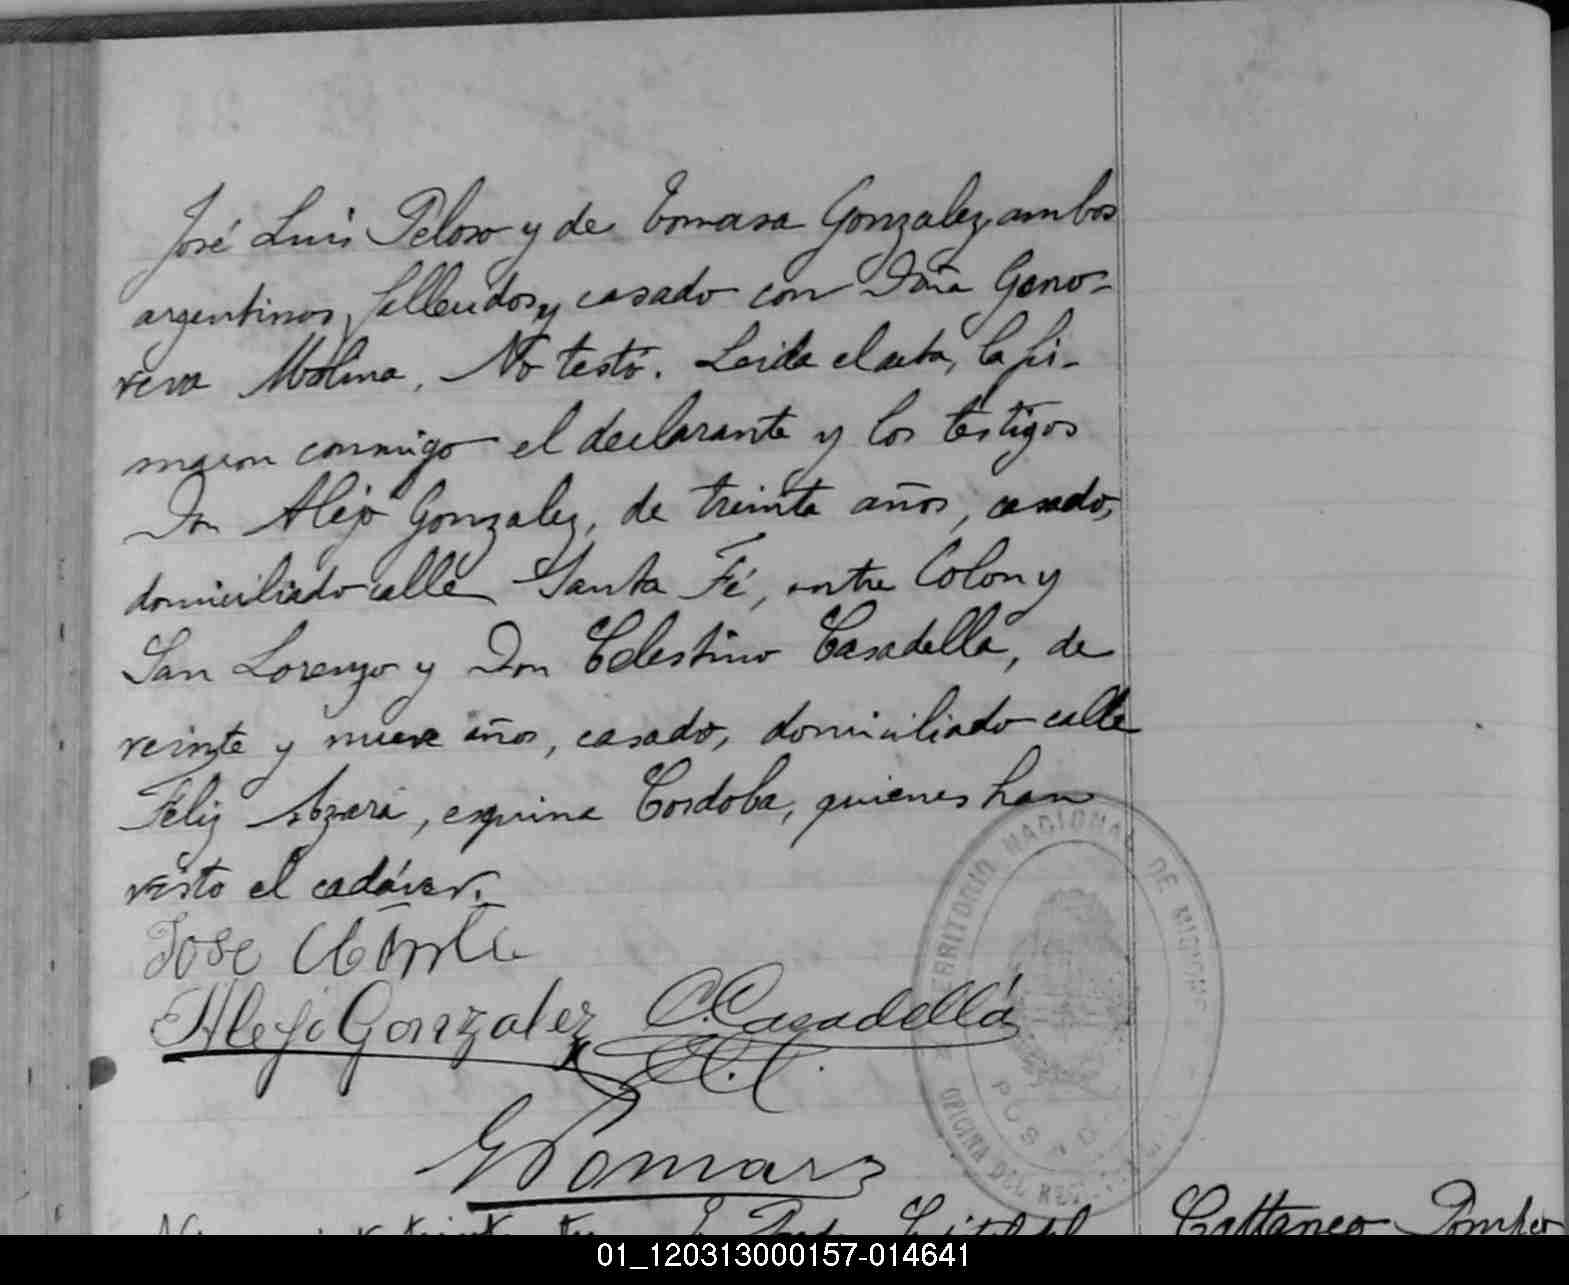 José Luis Peloso y de Tomasa Gonzalez, ambos
argentinos, fallecidos, y casado con Doña Geno-
veva Molina. No testó. Leida el acta, la fir-
maron conmigo el declarante y los testigos
Don Alejo Gonzalez, de treinta años, casado,
domiciliado calle Santa Fé, entre Colon y
San Lorenzo y Don Celestino Casadella, de
veinte y nueve años, casado, domiciliado calle
Feliz Azara, esquina Cordoba, quienes han
visto el cadáver.
Jose
Alejo Gonzalez C. Casadellá
TERRITORIO NACIONAL DE MISIONES
OFICINA DEL
POSADAS
Cattaneo
01_120313000157-014641